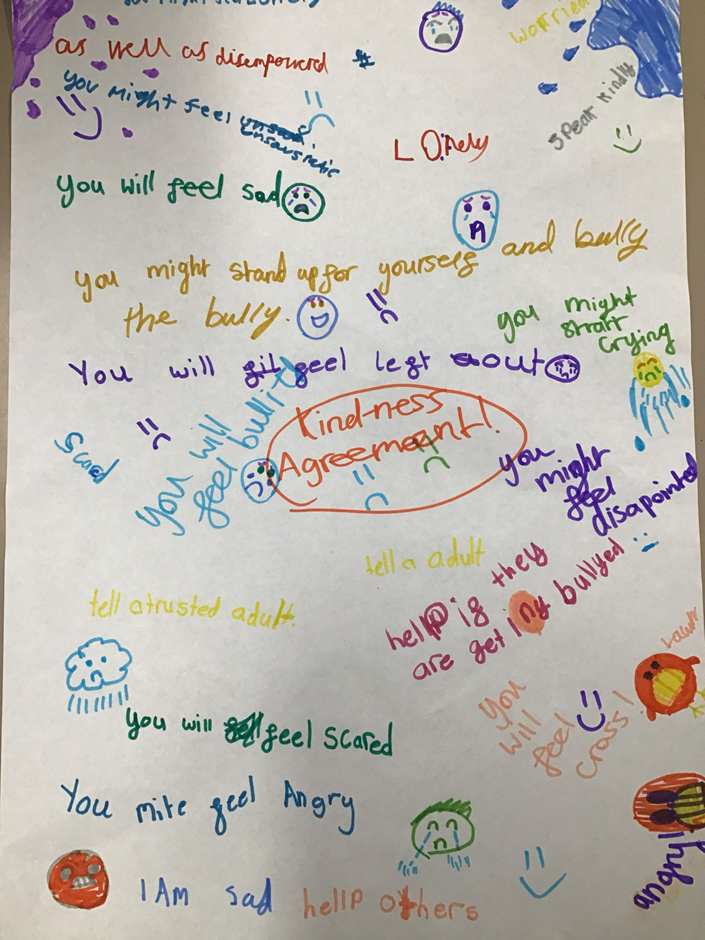 worried
as well as disempowered
you might feel
Speak kindly
LOnely
you will feel sad
you might stand up for yourself and bully
the bully.
you might
strart
crying
You will feel left out
Scared
You will
feel bulli
Kindness
Agreemeant!
you
might
feel
disapointed
tell a adult
tell a trusted adult.
help if they
are geting bullyed
You
will
feel
cross!
you will feel scared
You mite feel Angry
I AM sad
hellp others